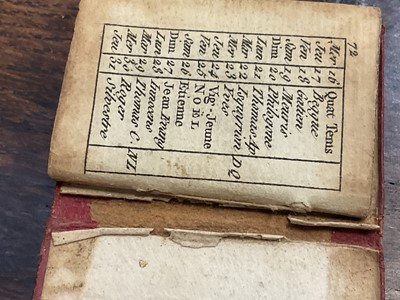 72
Mer 16 Quat Tems
Jeu 17
Ven 18 Gatien
Sam 19 Meuris
Dim 20 Philogone
Lun 21 Thomas Ap
Mar 22 D Q
Mer 23
Jeu 24 Vig-Jeune
Ven 25 NOËL
Sam 26 Etienne
Dim 27 Jean Evang
Lun 28 Innocens
Mar 29 Thomas C. N L
Mer 30 Roger
Jeu 31 Silvestre